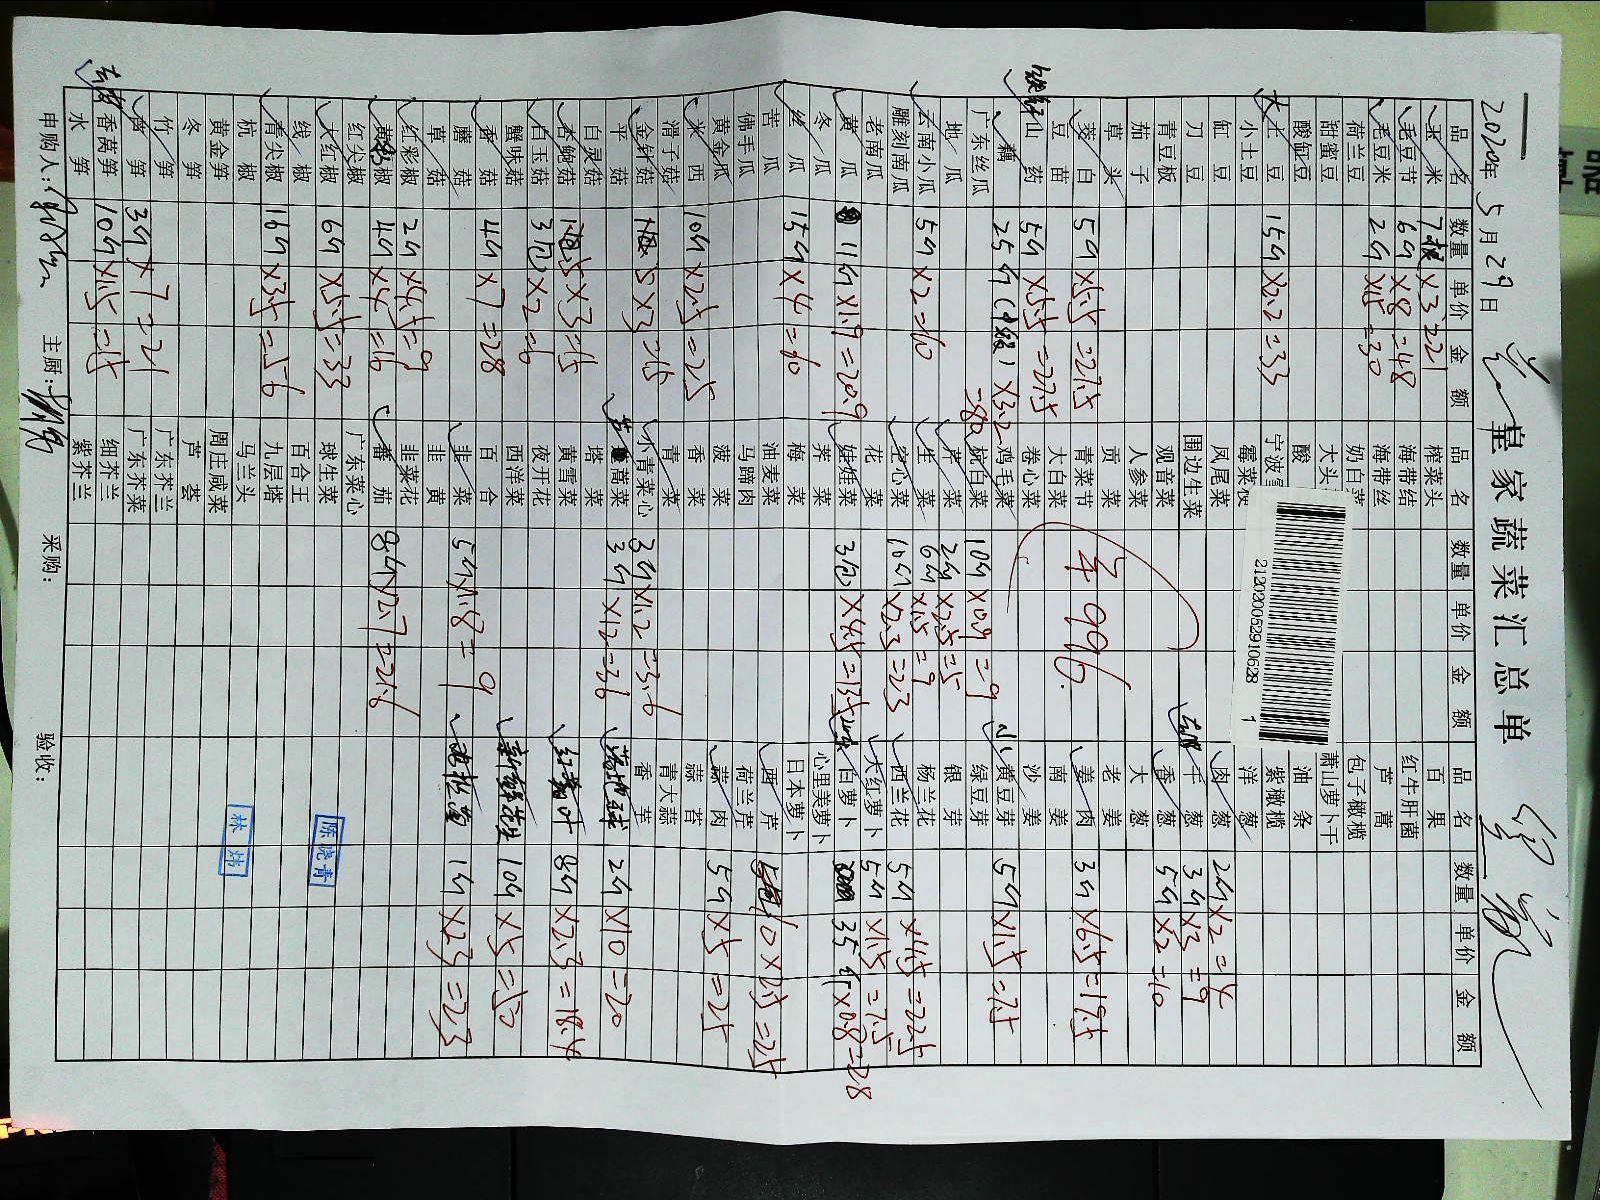 2020年5月29日 兰皇家蔬菜汇总单
品名 数量 单价 金额 品名 数量 单价 金额 品名 数量 单价 金额
玉米 7根×3=21 榨菜头 百果
毛豆节 6斤×8=48 海带结 红牛肝菌
毛豆米 2斤×15=30 海带丝 芦蒿
荷兰豆 奶白菜 包子橄榄
甜蜜豆 大头 萧山萝卜干
酸缸豆 酸 油条
小土豆 宁波 紫橄榄
大土豆 15斤×2.2=33 霉菜 洋葱 2斤×2=4
缸豆 凤尾菜 干葱 3斤×3=9
刀豆 围边生菜 香葱 5斤×2=10
青豆板 观音菜 大葱
茄子 人参菜 老姜
草头 贡菜 姜肉 3斤×6.5=19.5
茭白 5斤×5.5=27.5 青菜节 南姜
豆苗 大白菜 沙姜
山药 5斤×5.5=27.5 卷心菜 绿豆芽
藕 25斤(中级)×3.2=80 鸡毛菜 小黄豆芽 5斤×1.5=7.5
广东丝瓜 杭白菜 10斤×0.9=9 银芽
地瓜 芹菜 2斤×2.5=5 杨兰花
云南小瓜 5斤×2=10 生菜 6斤×1.5=9 西兰花 5斤×4.5=22.5
雕刻南瓜 空心菜 10斤×2.3=23 大红萝卜 5斤×1.5=7.5
老南瓜 花菜 白萝卜 35斤×0.8=28
黄瓜 11斤×1.9=20.9 娃娃菜 3包×4.5=13.5 心里美萝卜
冬瓜 荠菜 日本萝卜
丝瓜 15斤×4=60 梅菜 西芹 10×2.5=25
苦瓜 油麦菜 荷兰芹
佛手瓜 马蹄肉 蒜肉 5斤×5=25
黄金瓜 菠菜 蒜苔
西米 10斤×2.5=25 香菜 青大蒜
滑子菇 青菜 香芋
金针菇 5×3=15 小青菜心 3斤×1.2=3.6
平菇 茼蒿菜 3斤×12=36 2斤×10=20
白灵菇 塔菜
杏鲍菇 5×3=15 黄雪菜 8斤×2.3=18.4
白玉菇 3包×2=6 夜开花
蟹味菇 西洋菜 10斤×5=50
香菇 4斤×7=28 百合
蘑菇 韭菜 5斤×1.8=9 1斤×23=23
草菇 韭黄
红彩椒 2斤×4.5=9 韭菜花
黄彩椒 4斤×4=16 番茄 8斤×2.7=21.6
红尖椒 广东菜心
大红椒 6斤×5.5=33 球生菜
线椒 百合王
青尖椒 16斤×3.5=56 九层塔
杭椒 马兰头
黄金笋 周庄咸菜
冬笋 芦荟
竹笋 广东芥兰
芦笋 3斤×7=21 广东芥菜
香莴笋 10斤×1.5=15 细芥兰
水笋 紫芥兰
996
21202005291062​8 1
申购人: 主厨: 采购: 验收:
陈晓青
林炜